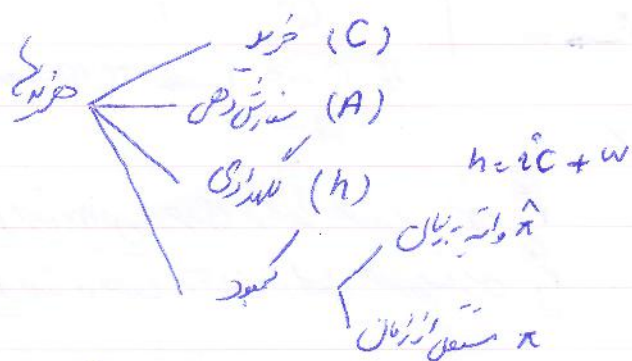 هزینه‌ها
خرید (C)
سفارش‌دهی (A)
نگهداری (h) h = iC + w
کمبود
وابسته به زمان π̂
مستقل از زمان π